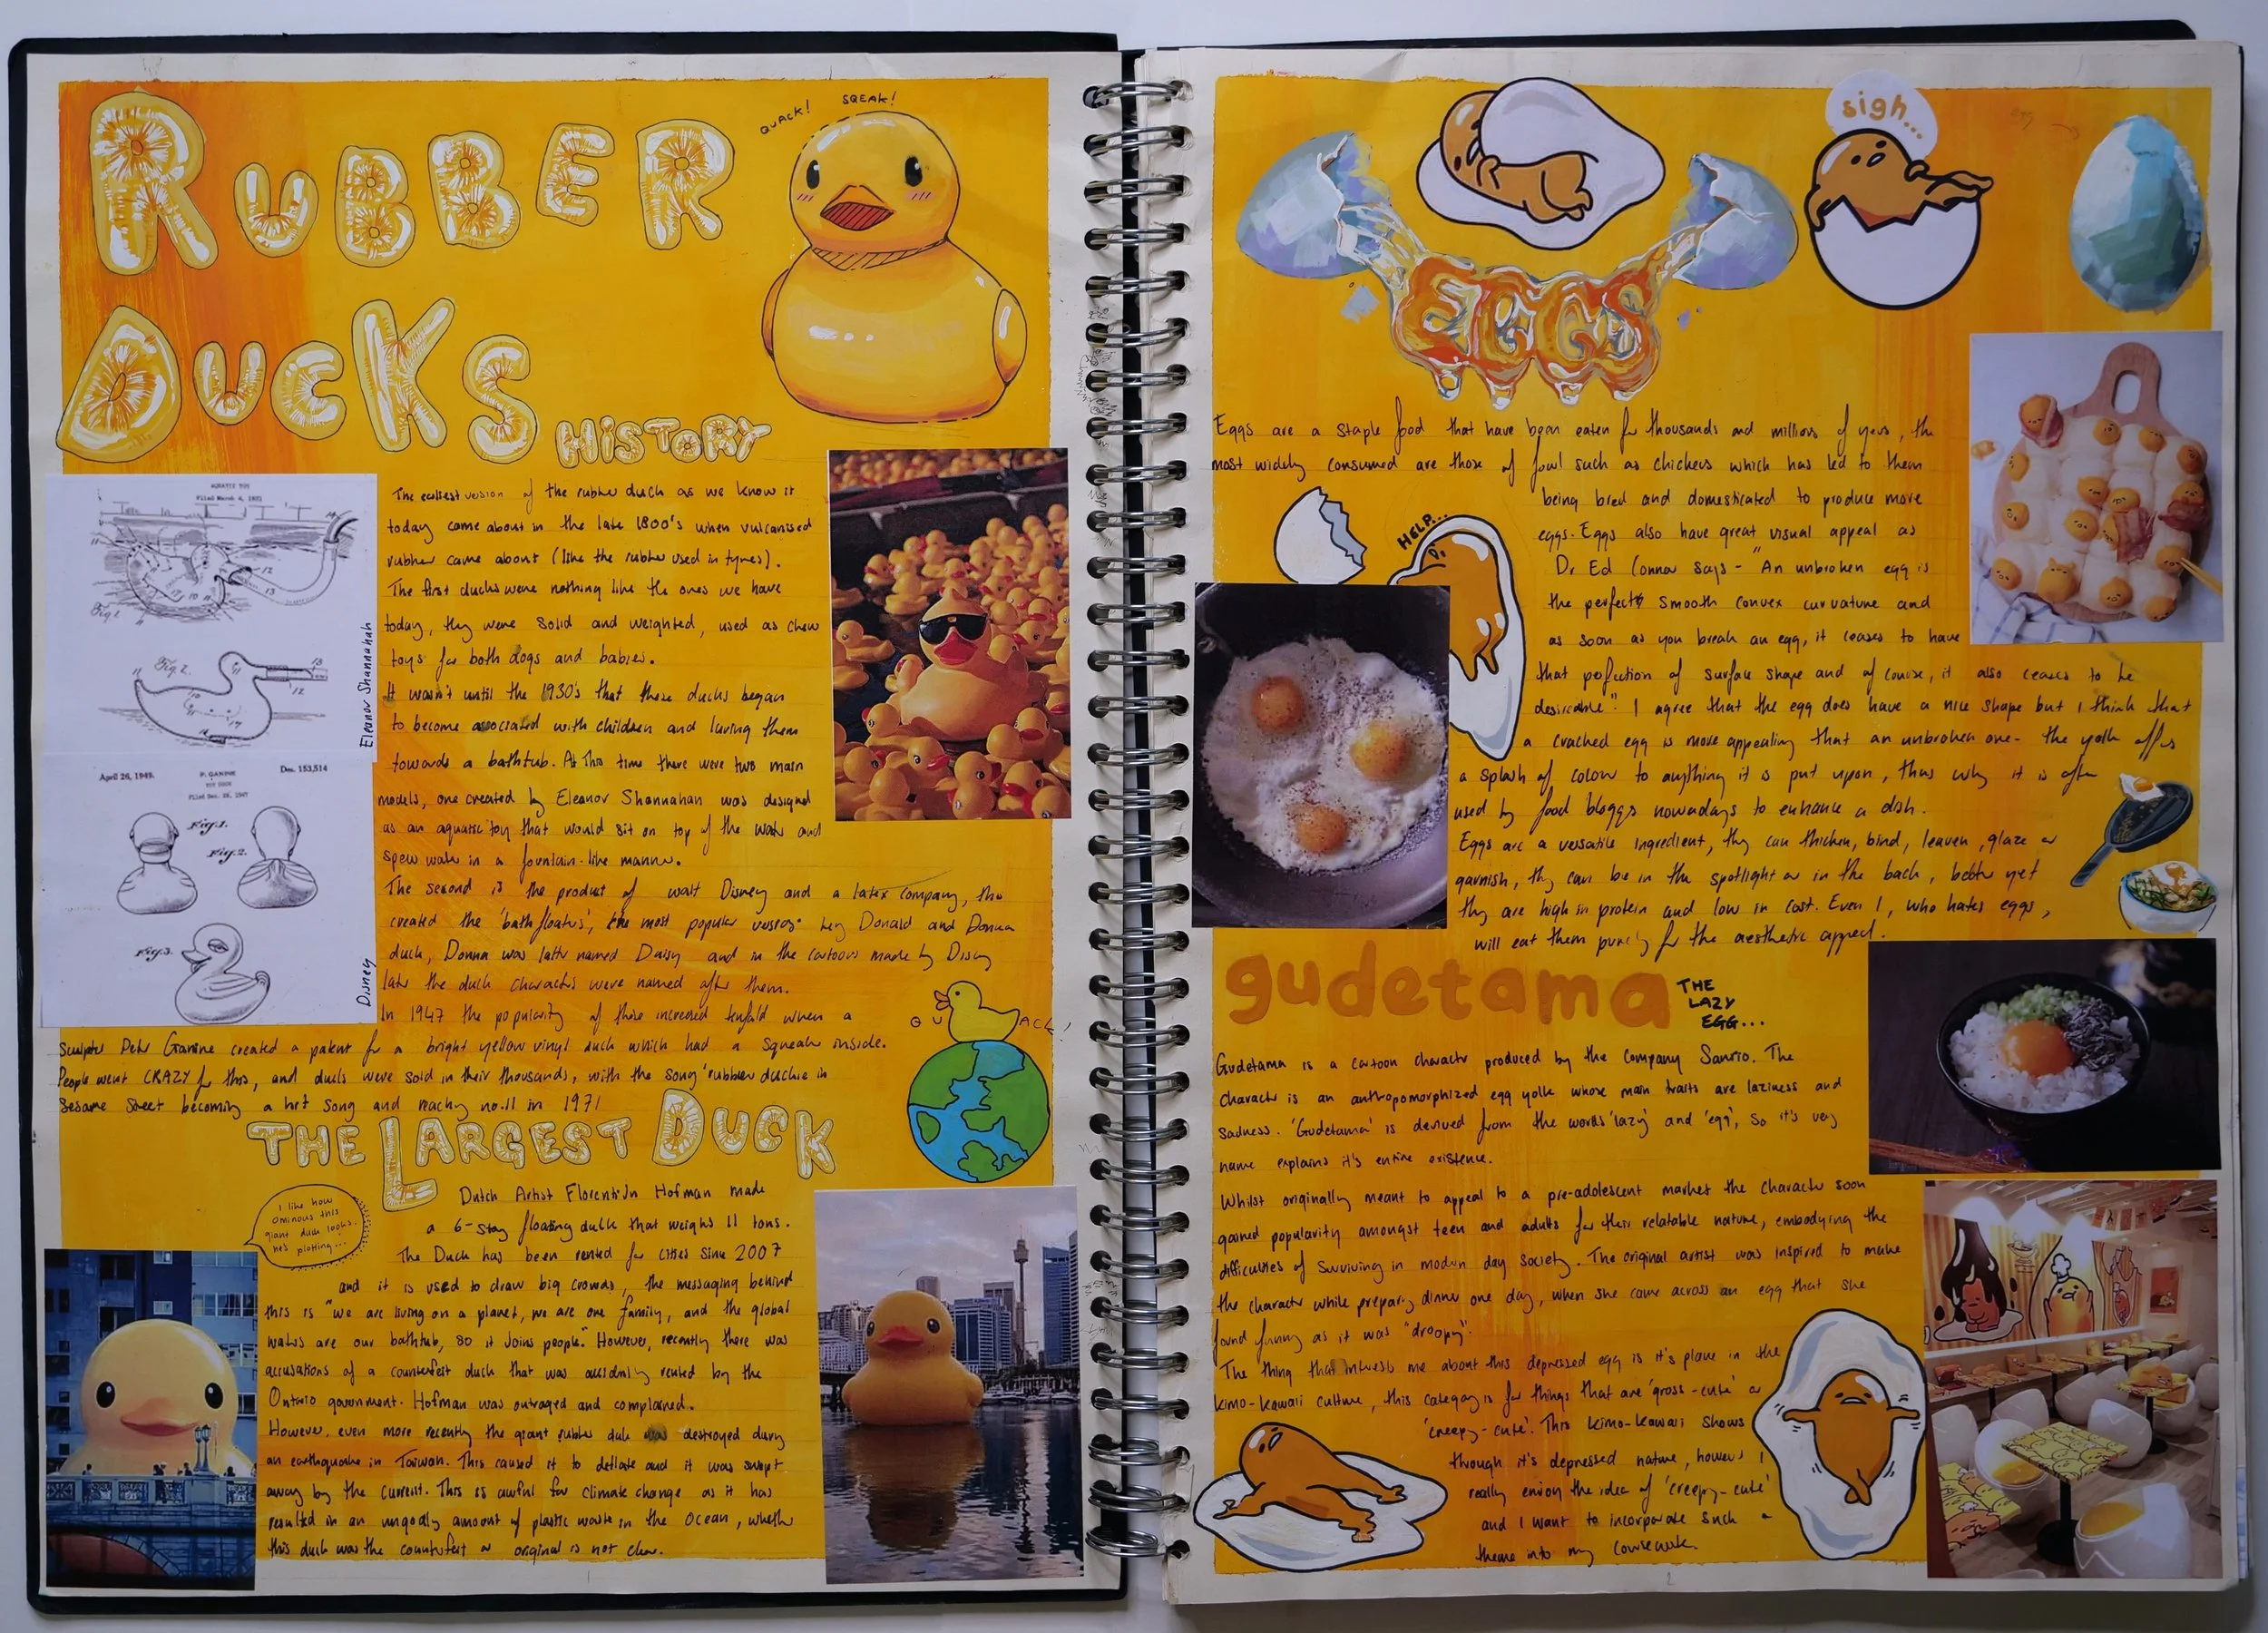 RUBBER
DUCKS
HISTORY
QUACK!
SQEAK!
AQUATIC TOY
Filed March 4, 1931
Fig 1
Fig 2.
Eleanor Shannahah
April 26, 1949.
P. GANINE
Des. 153,514
TOY DUCK
Filed Dec. 28, 1947
Fig. 1.
Fig. 2.
Fig. 3.
Disney
The earliest version of the rubber duck as we know it
today came about in the late 1800's when vulcanised
rubber came about (like the rubber used in tyres).
The first ducks were nothing like the ones we have
today, they were solid and weighted, used as chew
toys for both dogs and babies.
It wasn't until the 1930's that these ducks began
to become associated with children and luring them
towards a bathtub. At this time there were two main
models, one created by Eleanor Shannahan was designed
as an aquatic toy that would sit on top of the water and
spew water in a fountain-like manner.
The second is the product of walt Disney and a latex company, they
created the 'bath floaters', the most popular versions being Donald and Donna
duck, Donna was later named Daisy and in the cartoons made by Disney
later the duck characters were named after them.
In 1947 the popularity of these increased tenfold when a
sculptor Peter Ganine created a patent for a bright yellow vinyl duck which had a squeak inside.
People went CRAZY for this, and ducks were sold in their thousands, with the song 'rubber duckie in
Sesame Street becoming a hit song and reaching no.11 in 1971
QUACK!
THE LARGEST DUCK
I like how
ominous this
giant duck looks.
he's plotting...
Dutch Artist Florentijn Hofman made
a 6-story floating duck that weighs 11 tons.
The Duck has been rented for cities since 2007
and it is used to draw big crowds, the messaging behind
this is "we are living on a planet, we are one family, and the global
waters are our bathtub, so it joins people." However, recently there was
accusations of a counterfeit duck that was accidently rented by the
Ontario government. Hofman was outraged and complained.
However, even more recently the giant rubber duck was destroyed during
an earthquake in Taiwan. This caused it to deflate and it was swept
away by the current. This is awful for climate change as it has
resulted in an ungodly amount of plastic waste in the ocean, whether
this duck was the counterfeit or original is not clear.
sigh...
EGGS
Eggs are a staple food that have been eaten for thousands and millions of years, the
most widely consumed are those of fowl such as chickens which has led to them
being bred and domesticated to produce more
eggs. Eggs also have great visual appeal as
Dr Ed Connor says - "An unbroken egg is
the perfect smooth convex curvature and
as soon as you break an egg, it ceases to have
that perfection of surface shape and of course, it also ceases to be
desirable". I agree that the egg does have a nice shape but I think that
a cracked egg is more appealing that an unbroken one- the yolk offers
a splash of colour to anything it is put upon, thus why it is often
used by food bloggers nowadays to enhance a dish.
Eggs are a versatile ingredient, they can thicken, bind, leaven, glaze or
garnish, they can be in the spotlight or in the back, better yet
they are high in protein and low in cost. Even I, who hates eggs,
will eat them purely for the aesthetic appeal.
HELP...
gudetama
THE
LAZY
EGG...
Gudetama is a cartoon character produced by the company Sanrio. The
character is an anthropomorphized egg yolk whose main traits are laziness and
sadness. 'Gudetama' is derived from the words 'lazy' and 'egg', so it's very
name explains it's entire existence.
Whilst originally meant to appeal to a pre-adolescent market the character soon
gained popularity amongst teen and adults for their relatable nature, embodying the
difficulties of surviving in modern day society. The original artist was inspired to make
the character while preparing dinner one day, when she came across an egg that she
found funny as it was "droopy".
The thing that interests me about this depressed egg is it's place in the
kimo-kawaii culture, this category is for things that are 'gross-cute' or
'creepy-cute'. This kimo-kawaii shows
through it's depressed nature, however I
really enjoy the idea of 'creepy-cute'
and I want to incorporate such a
theme into my coursework.